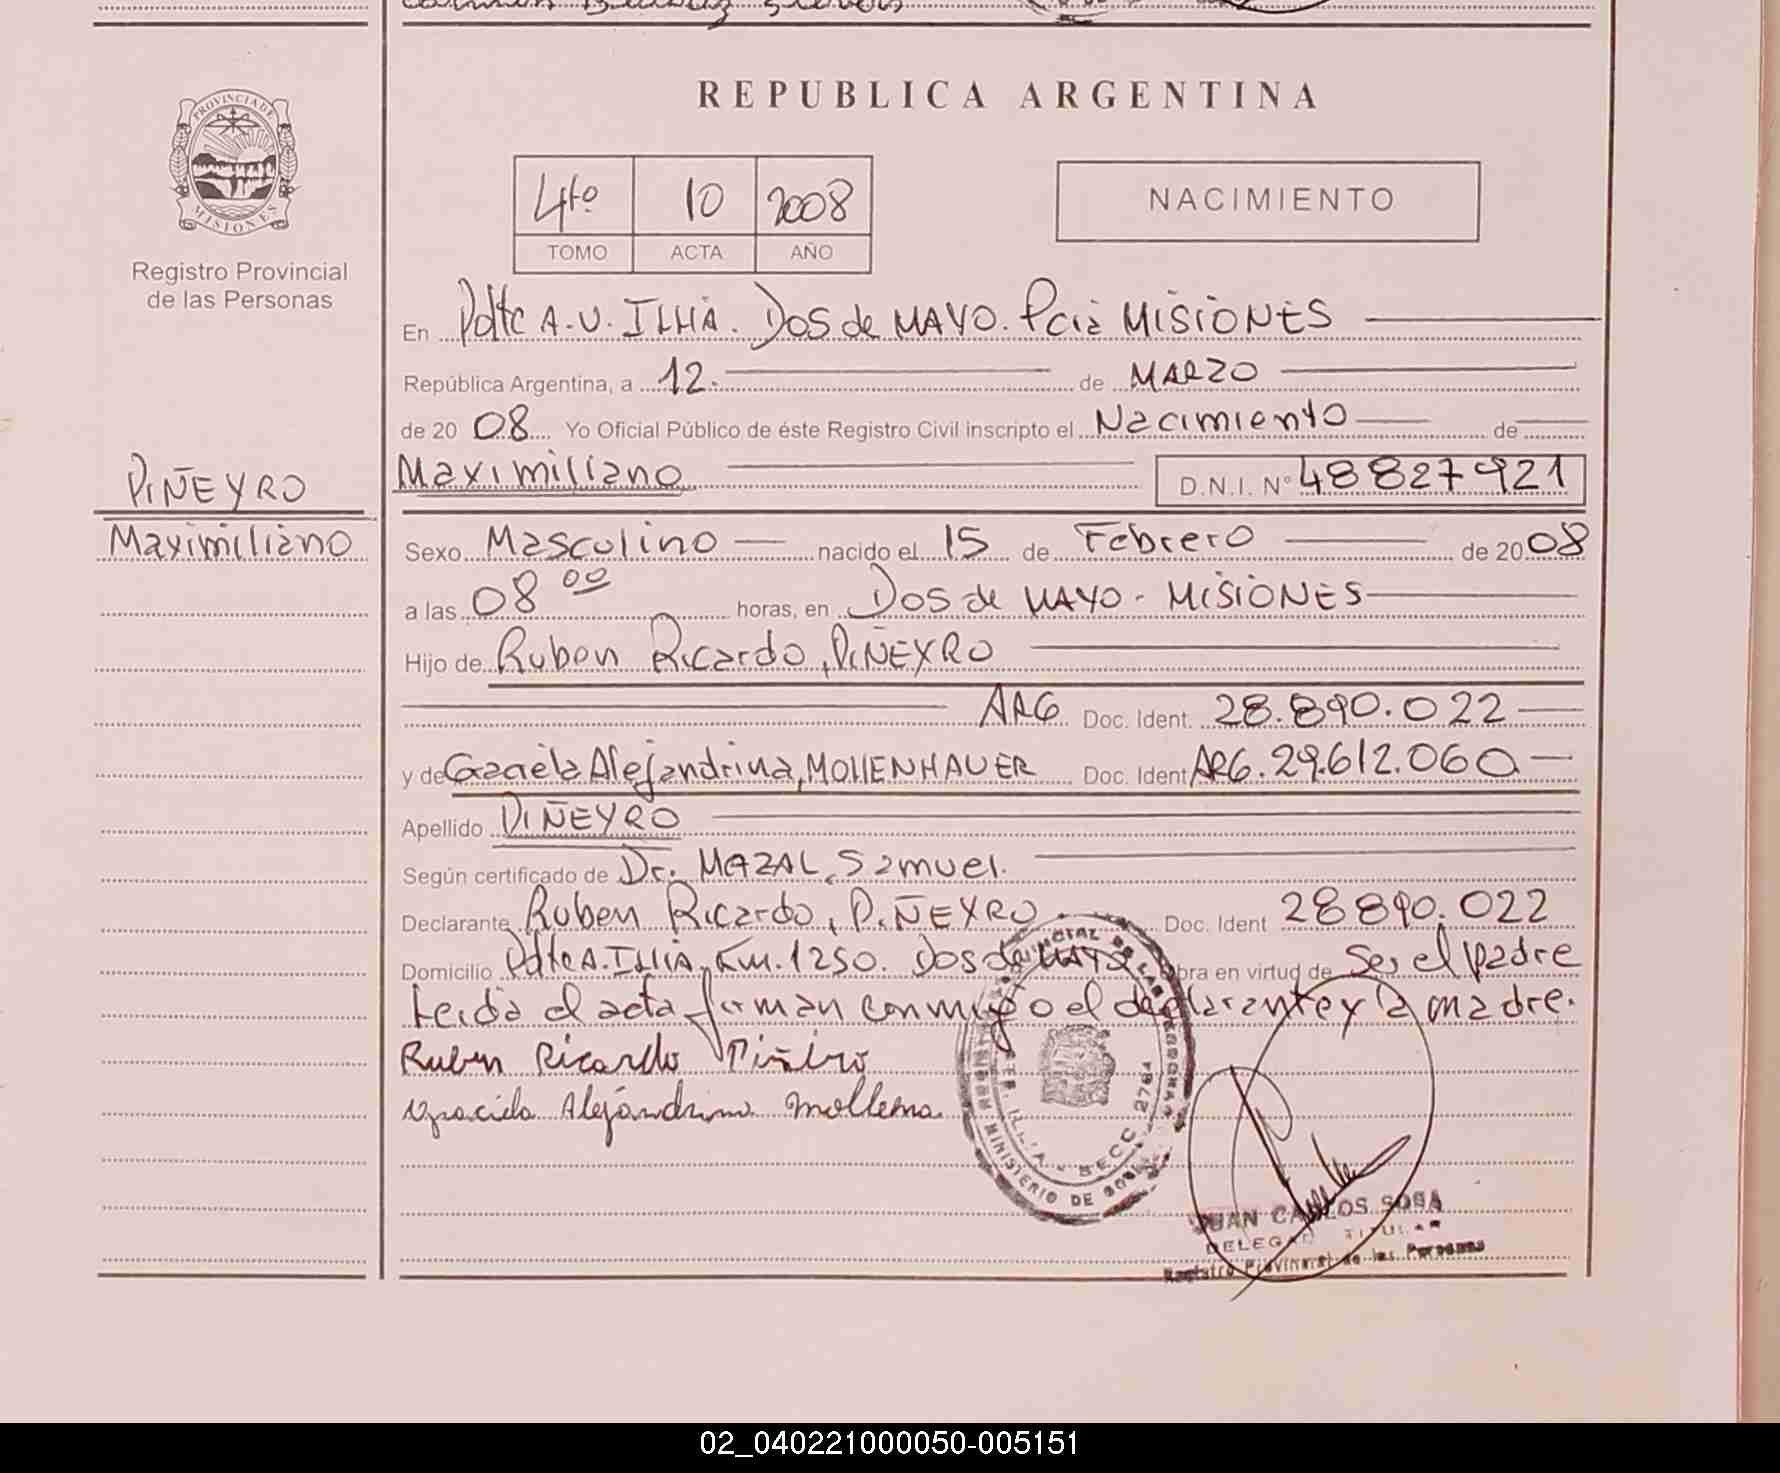 PROVINCIA DE MISIONES
Registro Provincial
de las Personas
PIÑEYRO
Maximiliano
REPUBLICA ARGENTINA
4to 10 2008
TOMO ACTA AÑO
NACIMIENTO
En Pdte A.U. ILLIA. DOS de MAYO. Pcia MISIONES
República Argentina, a 12. de MARZO
de 20 08 Yo Oficial Público de éste Registro Civil inscripto el Nacimiento de
Maximiliano D.N.I. Nº 48827921
Sexo Masculino nacido el 15 de Febrero de 20 08
a las 08 00 horas, en DOS de MAYO - MISIONES
Hijo de Ruben Ricardo, PIÑEYRO
ARG Doc. Ident. 28.890.022
y de Graciela Alejandrina, MOLLENHAUER Doc. Ident ARG. 29.612.060
Apellido PIÑEYRO
Según certificado de Dr. MAZAL, Samuel.
Declarante Ruben Ricardo, PIÑEYRO Doc. Ident 28890.022
Domicilio Pdte A. ILLIA. Km. 1250. Dos de MAYO Obra en virtud de Ser el padre
Leida el acta firman conmigo el declarante y la madre.
Ruben Ricardo Piñeiro
Graciela Alejandrina Mollena
SECC 2764
MINISTERIO DE GOB
JUAN CARLOS SOSA
DELEGADO TITULAR
Registro Provincial de las Personas
02_040221000050-005151